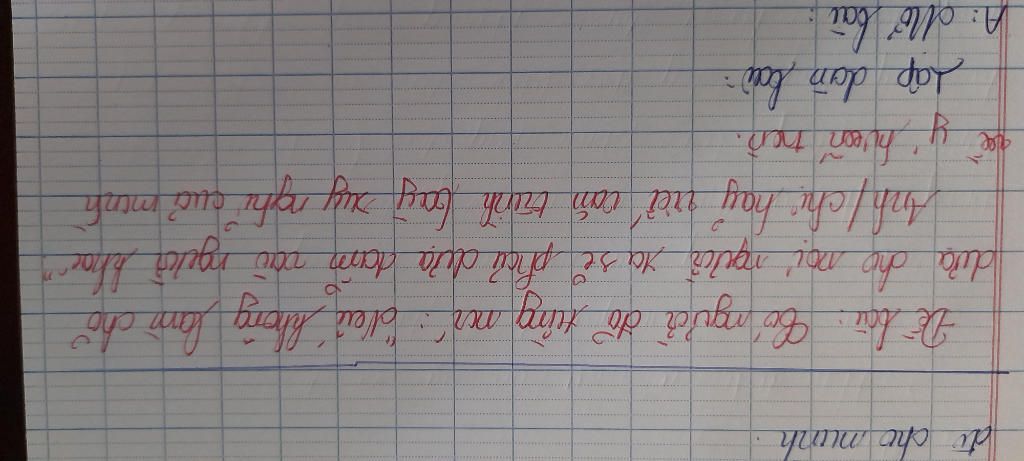 dỗ cho mình.
Đề bài: Có người đã từng nói: "Nếu không làm chỗ
dựa cho mọi người ta sẽ phải dựa dẫm vào người khác".
Anh/chị hãy viết văn trình bày suy nghĩ của mình
về ý kiến trên.
Lập dàn bài:
A: Mở bài: